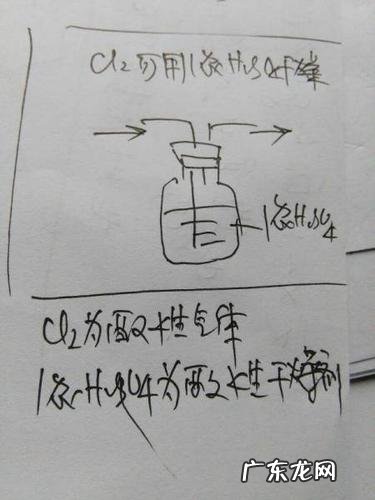 Cl2可用浓H2SO4干燥
浓H2SO4
Cl2为酸性气体
浓H2SO4为酸性干燥剂
广东龙网